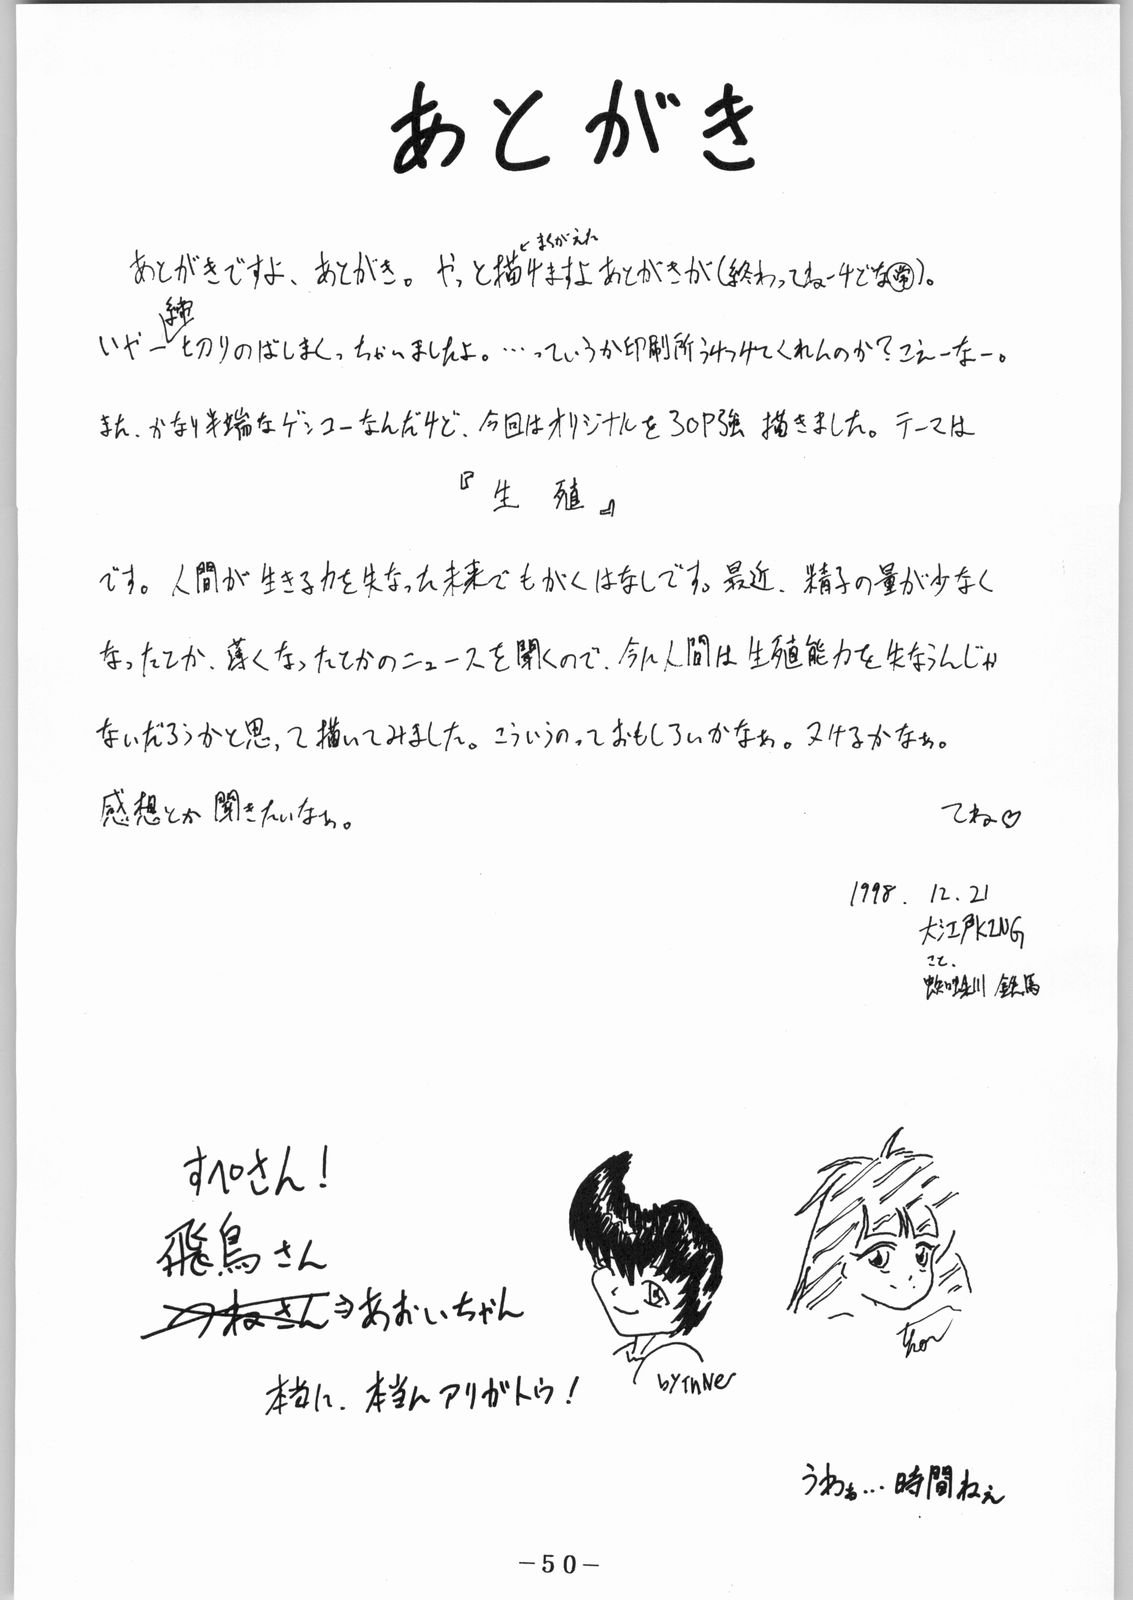 あとがき
まちがえた
あとがきですよ、あとがき。やっと描けますよあとがきが(終わってねーけどな)。
いやー締切りのばしまくっちゃいましたよ。…っていうか印刷所うけつけてくれんのか?こえーなー。
また、かなり半端なゲンコーなんだけど、今回はオリジナルを30P強 描きました。テーマは
『生 殖』
です。人間が生きる力を失なった未来でもがくはなしです。最近、精子の量が少なく
なったとか、薄くなったとかのニュースを聞くので、今に人間は生殖能力を失なうんじゃ
ないだろうかと思って描いてみました。こういうのっておもしろいかなぁ。ヌけるかなぁ。
感想とか聞きたいなぁ。
てね♡
1998. 12. 21
大江戸KING
こと、
川 鉄馬
すぺさん!
飛鳥さん
つねさん⇒あおいちゃん
本当に、本当にアリガトウ!
by InNer
うわぁ…時間ねぇ
-50-